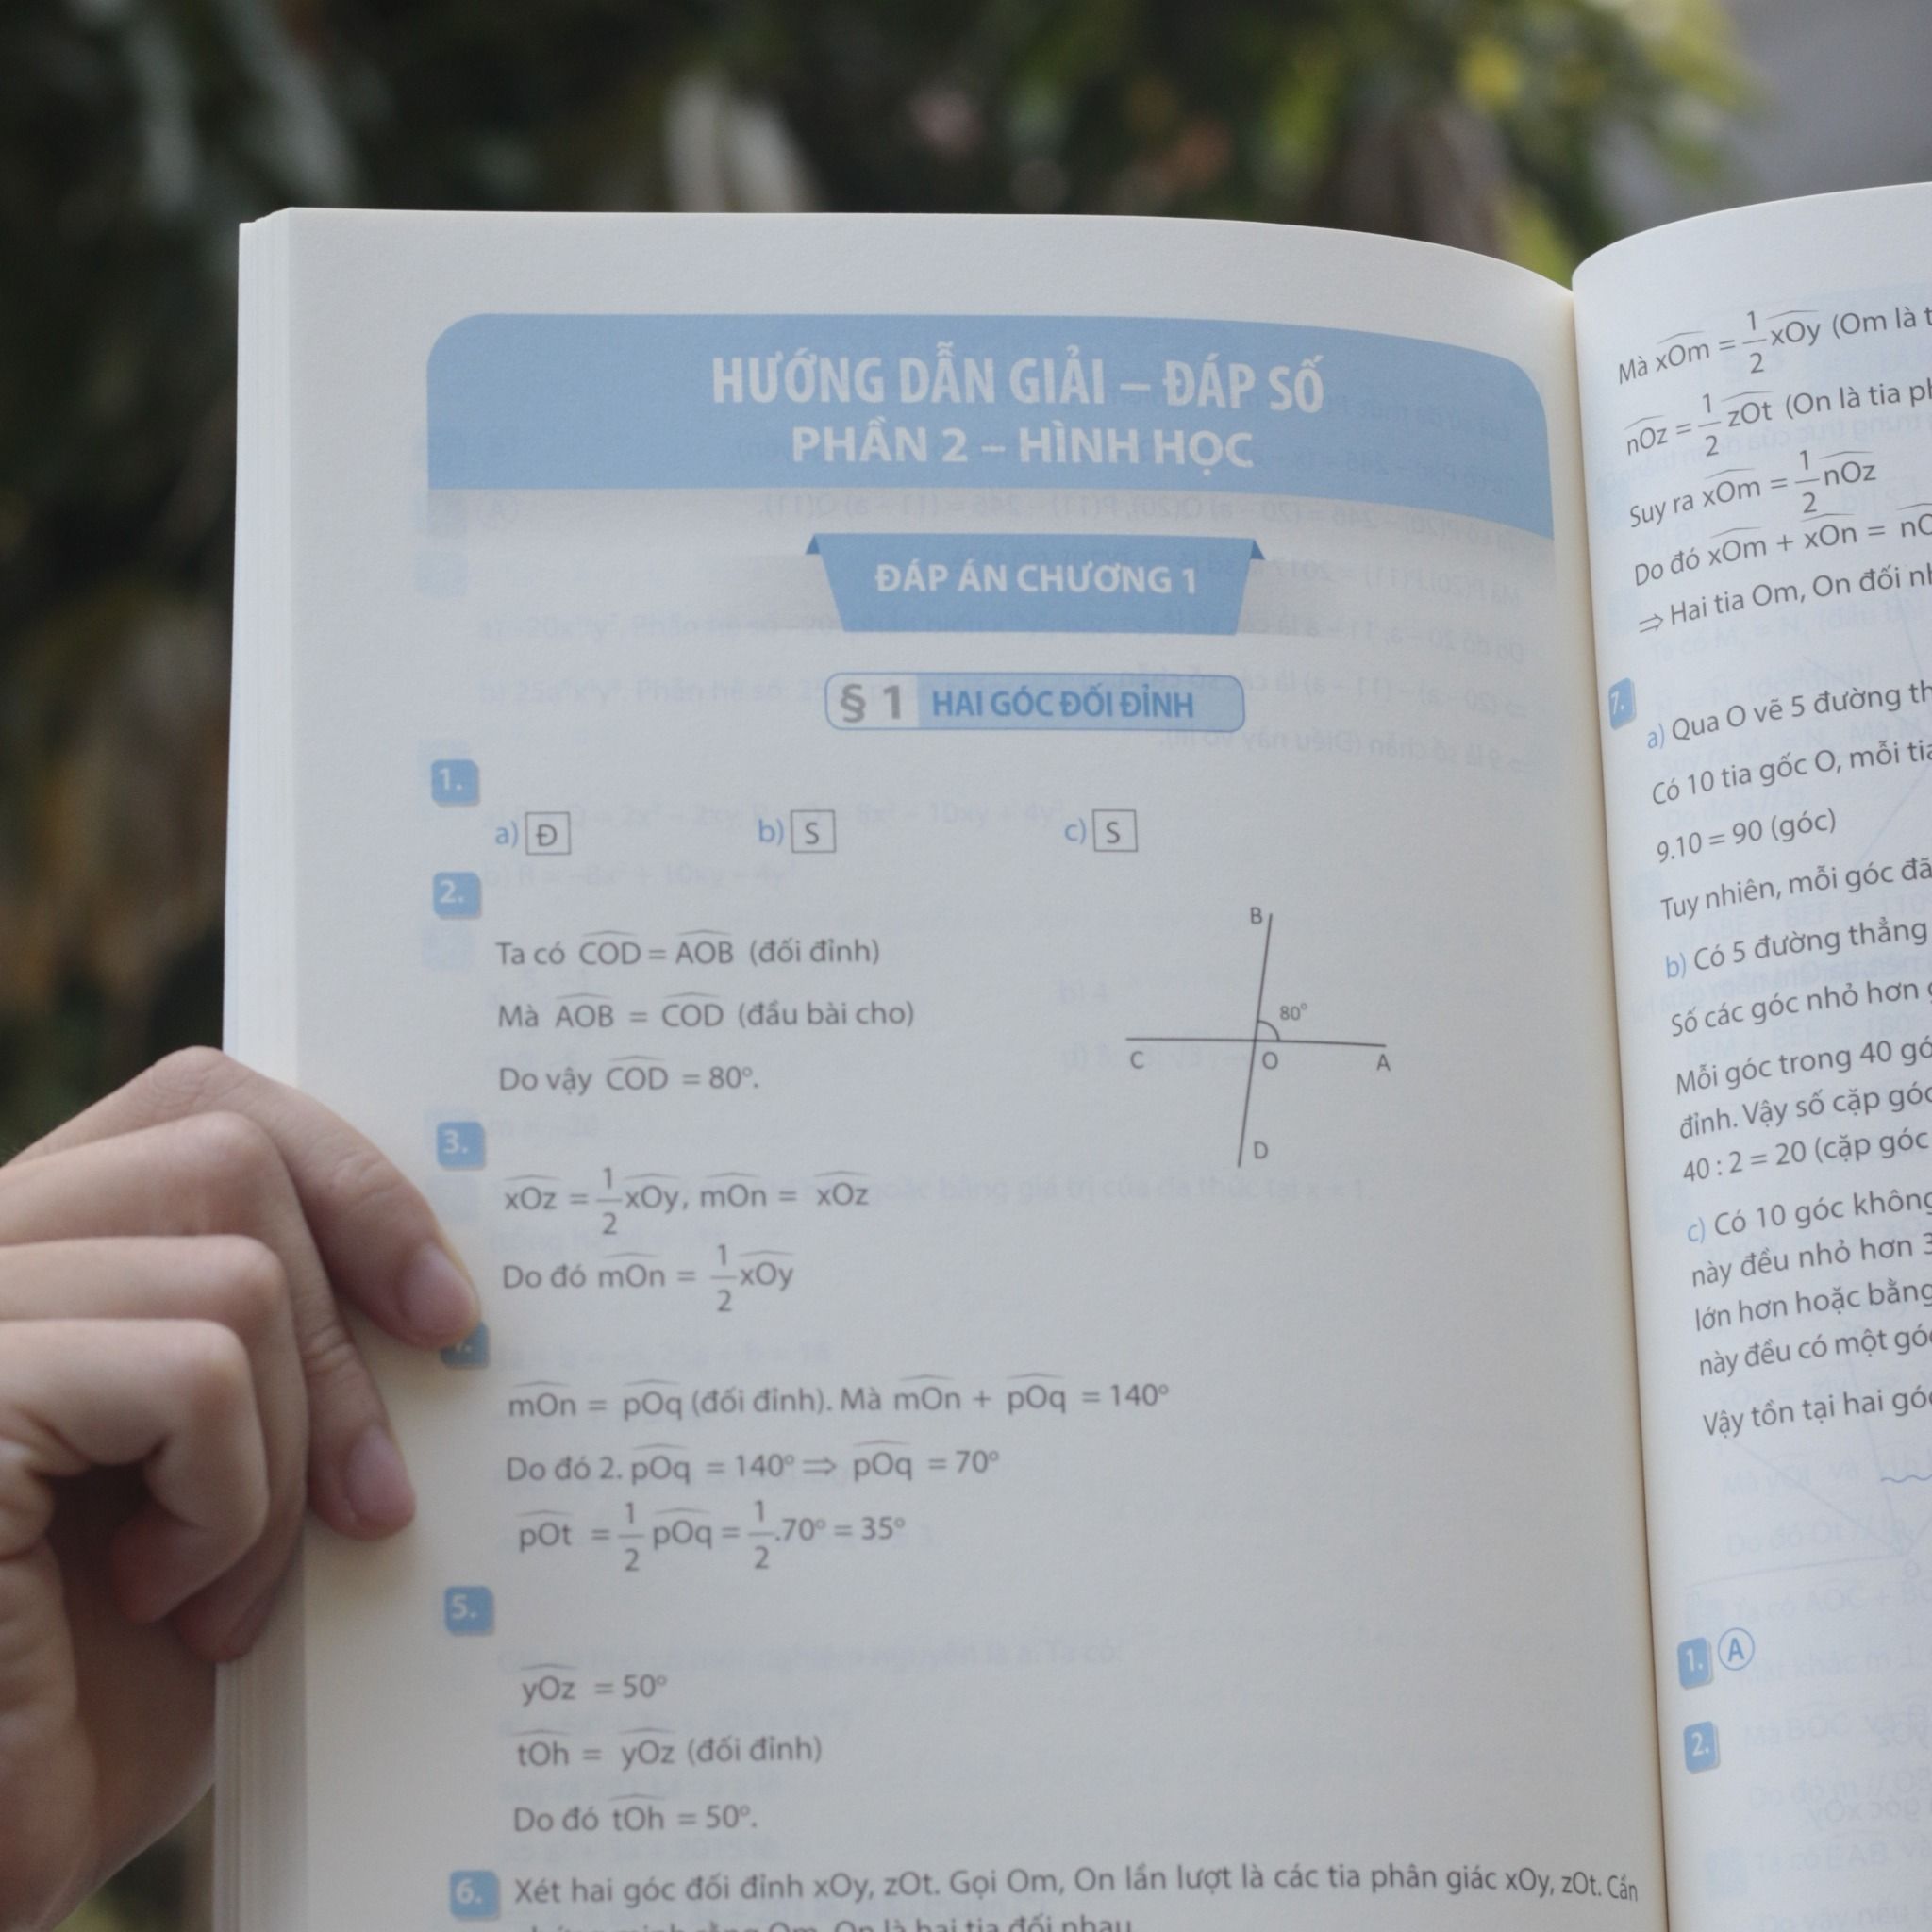 HƯỚNG DẪN GIẢI – ĐÁP SỐ
PHẦN 2 – HÌNH HỌC
ĐÁP ÁN CHƯƠNG 1
§ 1 HAI GÓC ĐỐI ĐỈNH
1.
a) Đ b) S c) S
2.
Ta có COD = AOB (đối đỉnh)
Mà AOB = COD (đầu bài cho)
Do vậy COD = 80°.
B
80°
C O A
D
3.
xOz = 1/2 xOy, mOn = xOz
Do đó mOn = 1/2 xOy
mOn = pOq (đối đỉnh). Mà mOn + pOq = 140°
Do đó 2. pOq = 140° ⇒ pOq = 70°
pOt = 1/2 pOq = 1/2 .70° = 35°
5.
yOz = 50°
tOh = yOz (đối đỉnh)
Do đó tOh = 50°.
6. Xét hai góc đối đỉnh xOy, zOt. Gọi Om, On lần lượt là các tia phân giác xOy, zOt. Cần
Om, On là hai tia đối nhau
Mà xOm = 1/2 xOy (Om là
nOz = 1/2 zOt (On là tia
Suy ra xOm = 1/2 nOz
Do đó xOm + xOn =
⇒ Hai tia Om, On đối
7.
a) Qua O vẽ 5 đường
Có 10 tia gốc O, mỗi
9.10 = 90 (góc)
Tuy nhiên, mỗi góc đã
b) Có 5 đường thẳng
Số các góc nhỏ hơn
Mỗi góc trong 40
đỉnh. Vậy số cặp
40 : 2 = 20 (cặp góc
c) Có 10 góc không
này đều nhỏ hơn
lớn hơn hoặc bằng
này đều có một
Vậy tồn tại hai
1. A
2.